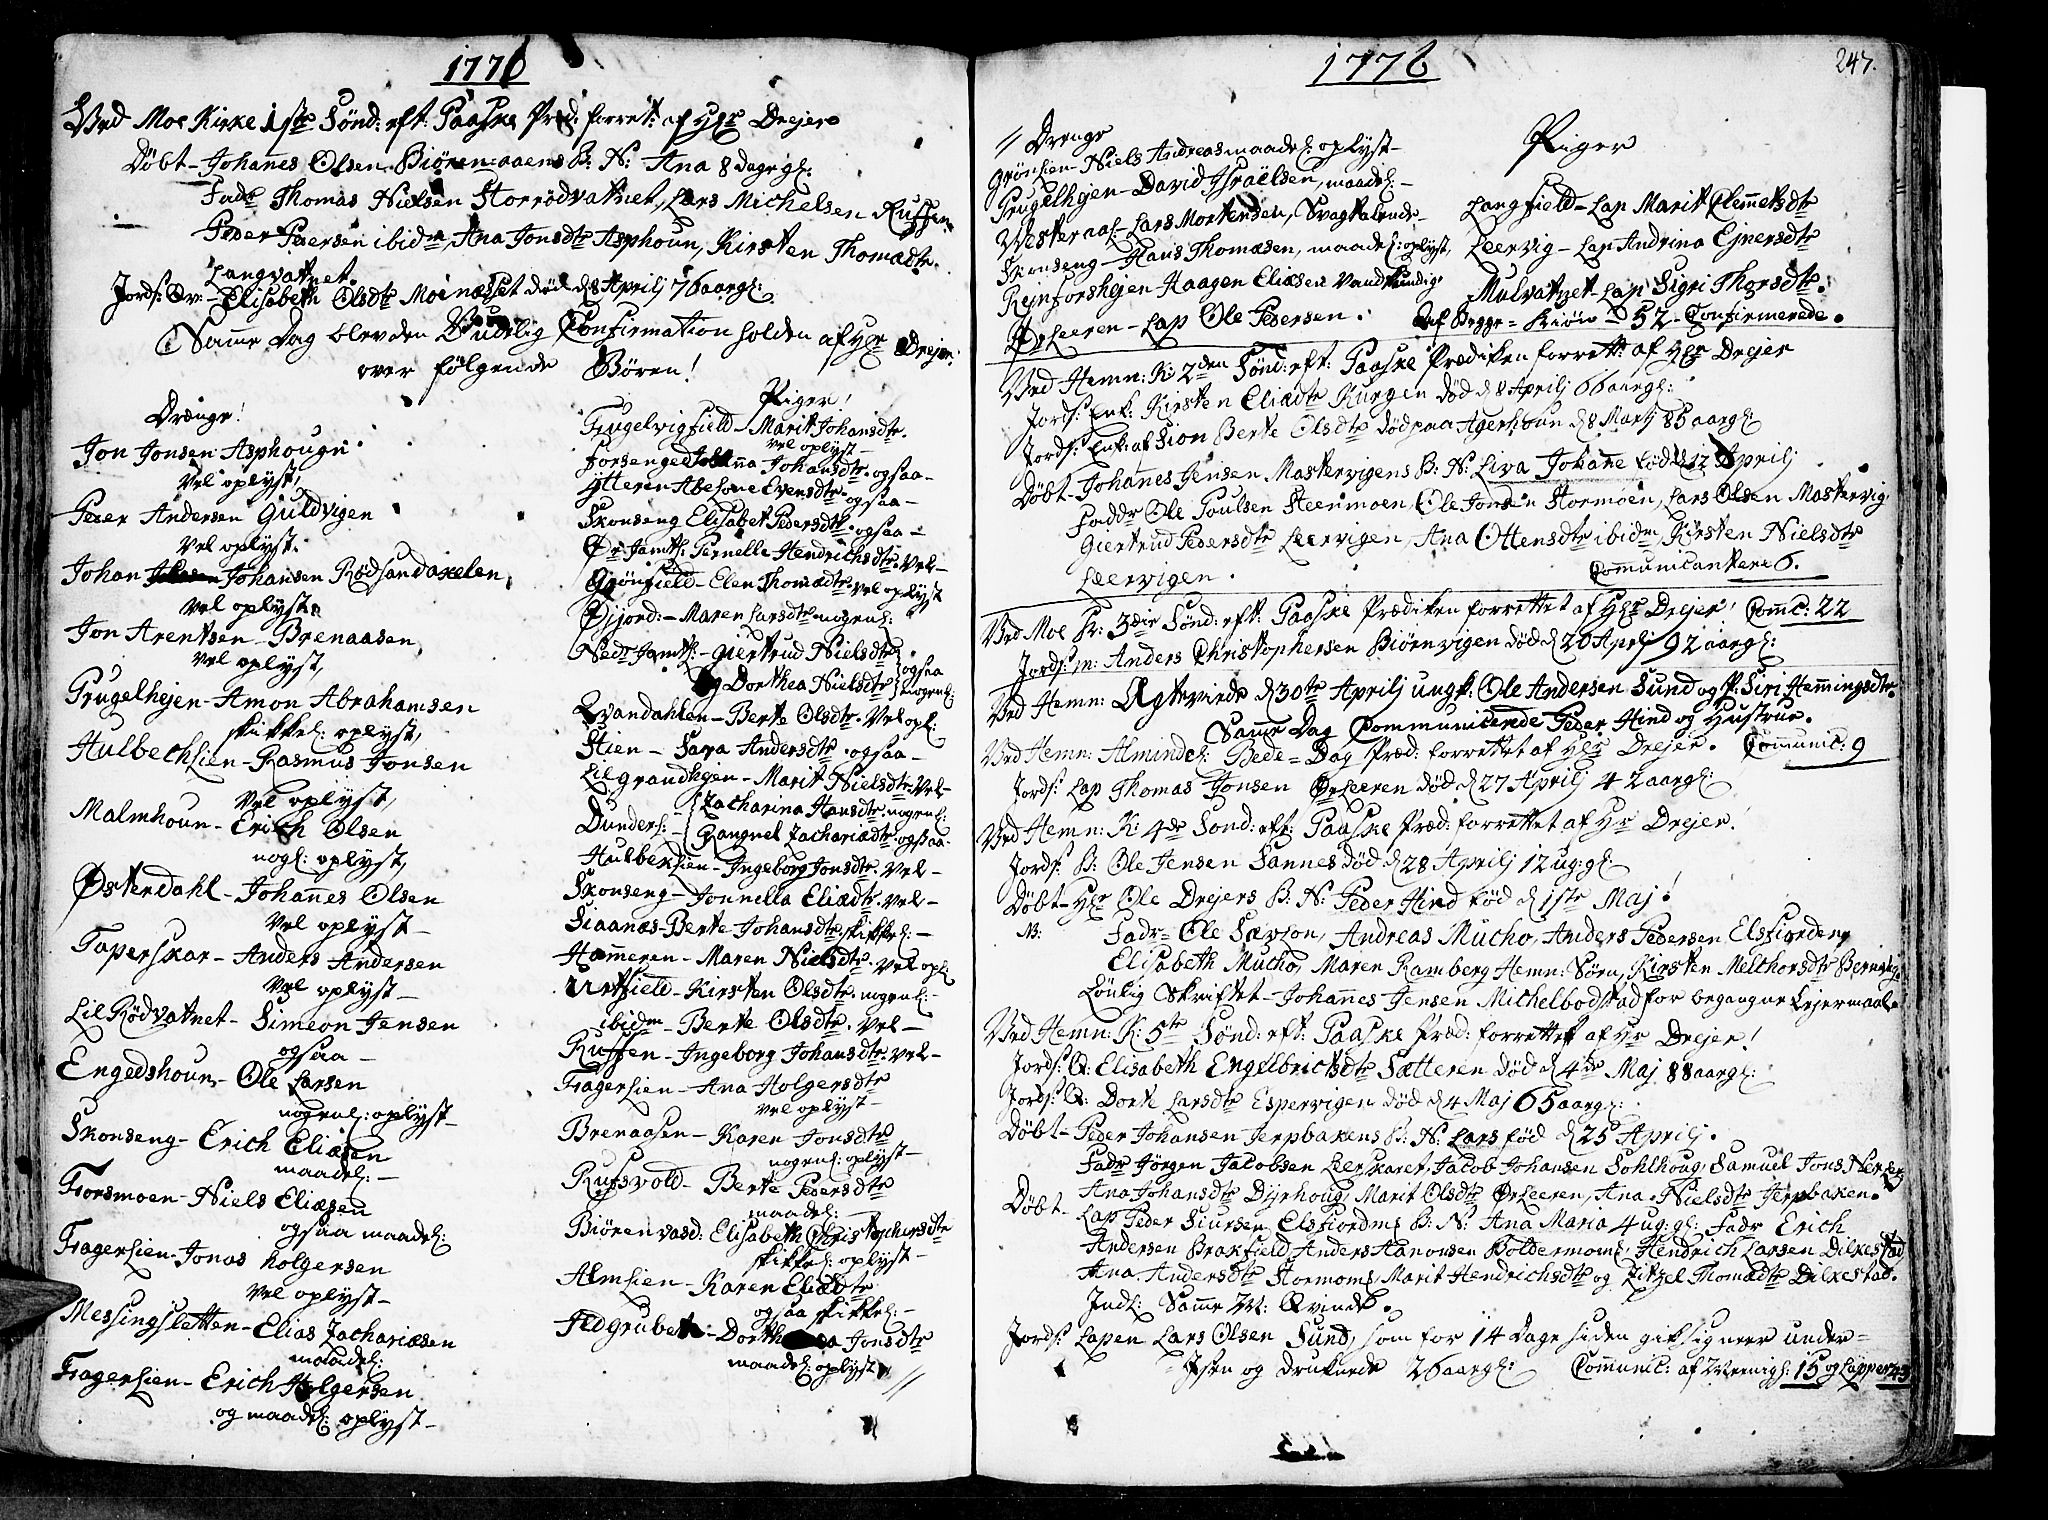 1776
Ved Moe Kirke 1ste Sønd: eft: Paaske Præd: forret: af Hr: Drejer
Døbt - Johañes Olsen Biørenaaens B: N: Ana 8 dage gl:
Fadr Thomas Nielsen Storrødvatnet, Lars Michelsen Ruffen
Peder Pedersen ibidm, Ana Jonsdtr Asphoun, Kirsten Thomædtr
Langvatnet.
Jords: Qv: - Elisabeth Olsdtr Moenæsset død d 8 Aprilj 76 aar gl:
Samme Dag blev den Confirmation holden af Hr Drejer
over følgende Børen!
Drænge!
Jon Jonsen Asphougn
Vel oplyst,
Peder Andersen Guldvigen
Vel oplyst.
Johan Johansen Rødsandaxelen,
Vel oplyst.
Jon Arentsen - Brenaasen
Vel oplyst,
Prugelhejen - Amon Abrahamsen
skikkel: oplyst,
Hulbechlien - Rasmus Jonsen
Vel oplyst,
Malmhoun - Erich Olsen
nogl: oplyst,
Østerdahl - Johañes Olsen
Vel oplyst -
Taperskar - Anders Andersen
Vel oplyst -
Lil Rødvatnet - Simeon Jensen
ogsaa -
Engedshoun - Ole Larsen
nogenl: oplyst -
Skonseng - Erich Eliæsen
maadel: -
Forsmoen - Niels Eliæsen
ogsaa maadel:
Fragerlien - Jonas Holgersen
Vel oplyst -
Messingsletten - Elias Zachariæsen
maadel:
Fragerlien - Erich Holgersen
og maadel: oplyst -
Piger!
Frugelvigfield - Marit Johansdtr.
Vel oplyst -
Forsenget Johanna Johansdtr - ogsaa -
Ytteren Abelone Evensdtr - ogsaa -
Skonseng Elisabet Pedersdtr - ogsaa -
Ør Jamtl: Pernelle Hendrichsdtr Vel -
Grønfield - Elen Thomædtr Vel oplyst
Øjjord: - Maren Larsdtr nogenl:
Nedr Jamtl: - Giertrud Nielsdtr
og Dorthea Nielsdtr } ogsaa nogenl:
Qvandahlen - Berte Olsdtr - Vel opl:
Stien - Sara Andersdtr - ogsaa -
Lilgrandhejen - Marit Nielsdtr Vel -
Dunderl: - { Zacharina Hansdtr nogenl:
Rangnel Zachariædtr ogsaa -
Hulbeklien - Ingeborg Jonsdtr - Vel -
Skonseng - Jonnella Eliædtr. Vel -
Siaanæs - Berte Johansdtr skikkel: -
Hammeren - Maren Nielsdtr. Vel opl:
Urtfield - Kirsten Olsdtr. nogenl: -
ibidm - Berte Olsdtr. Vel -
Ruffen - Ingeborg Johansdtr. Vel -
Fragerlien - Ana Holgersdtr
Vel oplyst -
Brenaasen - Karen Jonsdtr
nogenl: oplyst -
Rufsvold - Berte Pedersdtr
maadel: -
Biørenvasd: Elisabeth Christophersdtr
skikkel: oplyst -
Almlien - Karen Eliædtr
ogsaa skikkel: -
Fedgruben - Dorthea Jonsdtr
maadel: oplyst //
1776
247.
// Drenge
Grønlien - Niels Andreas maadel: oplyst -
Prugelhejen - David Israëlsen, maadel: -
Westeraal - Lars Mortensen, Svagtalende -
Skonseng - Hans Thomæsen, maadel: oplyst,
Reinforshejen Haagen Eliæsen Vandkundig
ØrLeeren - Lap Ole Pedersen.
Piger
Langfield - Lap Marit Clemmetsdtr
Leervig - Lap Andrina Ejnersdtr
Mulvatnet - Lap Sigri Thorsdtr.
af Begge Kiøn - 52 - Confirmerede.
Ved Hemn: K: 2den Sønd: eft: Paaske Prædiken forrett: af Hr Drejer
Jords: Enk: Kirsten Eliædtr Kurgen død d 8 Aprilj 66 aar gl:
Jords: Enk: af Sion Berte Olsdtr død paa Agerhoun d 8 Martj 85 aar gl
Døbt - Johañes Jensen Mastervigens B: N: Liva Johañe fød d 12 Aprilj
Faddr Ole Poulsen Steenmoen, Ole Jonsen Stormoen, Lars Olsen Mastervig
Giertrud Pedersdtr Leervigen, Ana Ottensdtr ibidm, Kirsten Nielsdtr
Leervigen. Communicantere 6.
Ved Moe K: 3die Sønd: eft: Paaske Prædiken forrettet af Hr Drejer! Comc: 22
Jords: m: Anders Christophersen Biørnvigen død d 20 April 92 aar gl:
Ved Hemn: Ægteviede d 30te Aprilj ungk: Ole Andersen Sund og p: Siri Hemmingsdtr
Samme Dag Communicerede Peder Hind og Hustrue.
Ved Hemn: Almindel: Bede-Dag Præd: forrettet af Hr Drejer. Communic: 9
Jords: Lap Thomas Jonsen ØrLeeren død d 27 Aprilj 42 aar gl:
Ved Hemn: K: 4de Sønd: eft: Paaske Præd: forrettet af Hr Drejer!
Jords: B: Ole Jensen Sannes død d 28 Aprilj 12 ug: gl:
Døbt - Hr Ole Drejers B: N: Peder Hind fød d 1ste Maj!
N: Fadr - Ole Sæwson, Andreas Mucho, Anders Pedersen Elsfiorden,
Elisabeth Mucho, Maren Ramberg Hemn: Sørn, Kirsten Melthorsdtr
Lønlig Skriftet - Johañes Jensen Michelbodstad for begangne Lejermaal
Ved Hemn: K: 5te Sønd: eft: Paaske Præd: forrettet af Hr Drejer!
Jords: Q: Elisabeth Engelbrichtsdtr Sætteren død d 4de Maj 88 aar gl:
Jords: Q: Dort Larsdtr Espervigen død d 4 Maj 65 aar gl:
Døbt - Peder Johansen Jerpbakens B: N: Lars fød d 25 Aprilj.
Fadr Jørgen Jacobsen Leerskaret, Jacob Johansen Sohlhoug, Samuel Jons
Ana Johansdtr Dyrhoug, Marit Olsdtr ØrLeeren, Ana Nielsdtr Jerpbaken.
Døbt - Lap Peder Siursen Elsfiordens B: N: Ana Maria 4 ug: gl: Fadr Erich
Andersen Brakfield, Anders Aanonsen Holdermoms, Hendrich Larsen Dilkestad
Ana Andersdtr Stormoms, Marit Hendrichsdtr og Zitzel Thomædtr Dilkestad.
Indl: Samme W: Qvinde.
Jords: Lapen Lars Olsen Sund, som for 14 Dage siden gik igien under
Isen og druknede 26 aar gl: Communic: af Menigh: 15 og Lapper 43